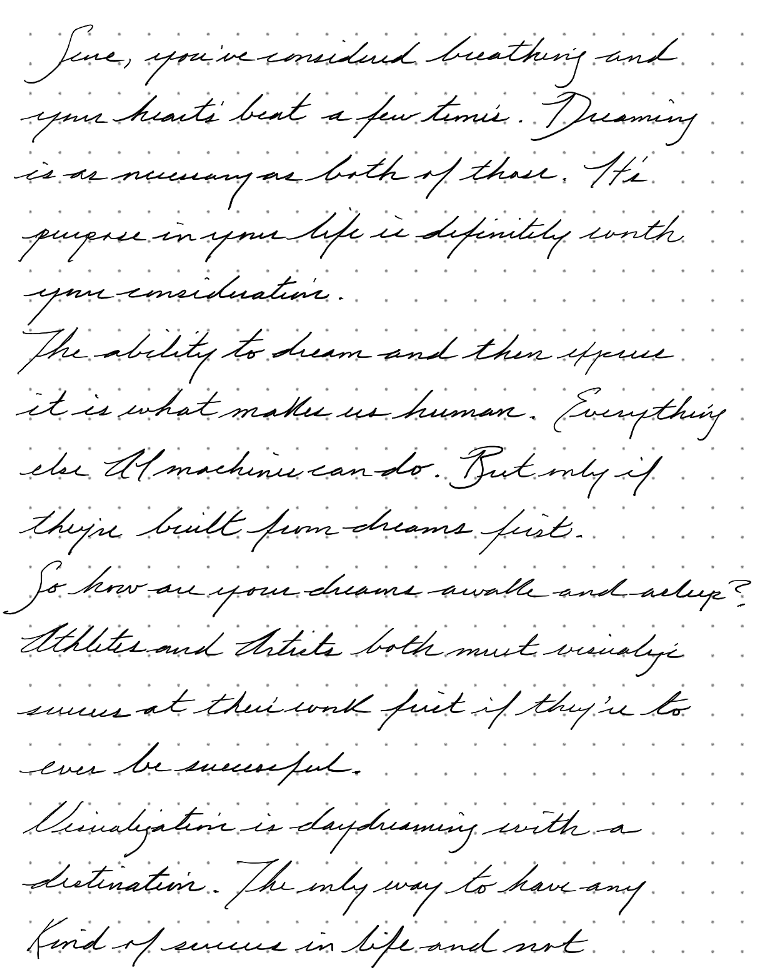 Sure, you've considered breathing and
your heart's beat a few times. Dreaming
is as necessary as both of those. It's
purpose in your life is definitely worth
your consideration.
The ability to dream and then express
it is what makes us human. Everything
else AI machines can do. But only if
they're built from dreams first.
So how are your dreams awake and asleep?
Athletes and Artists both must visualize
success at their work first if they're to
ever be successful.
Visualization is daydreaming with a
destination. The only way to have any
Kind of success in life and not